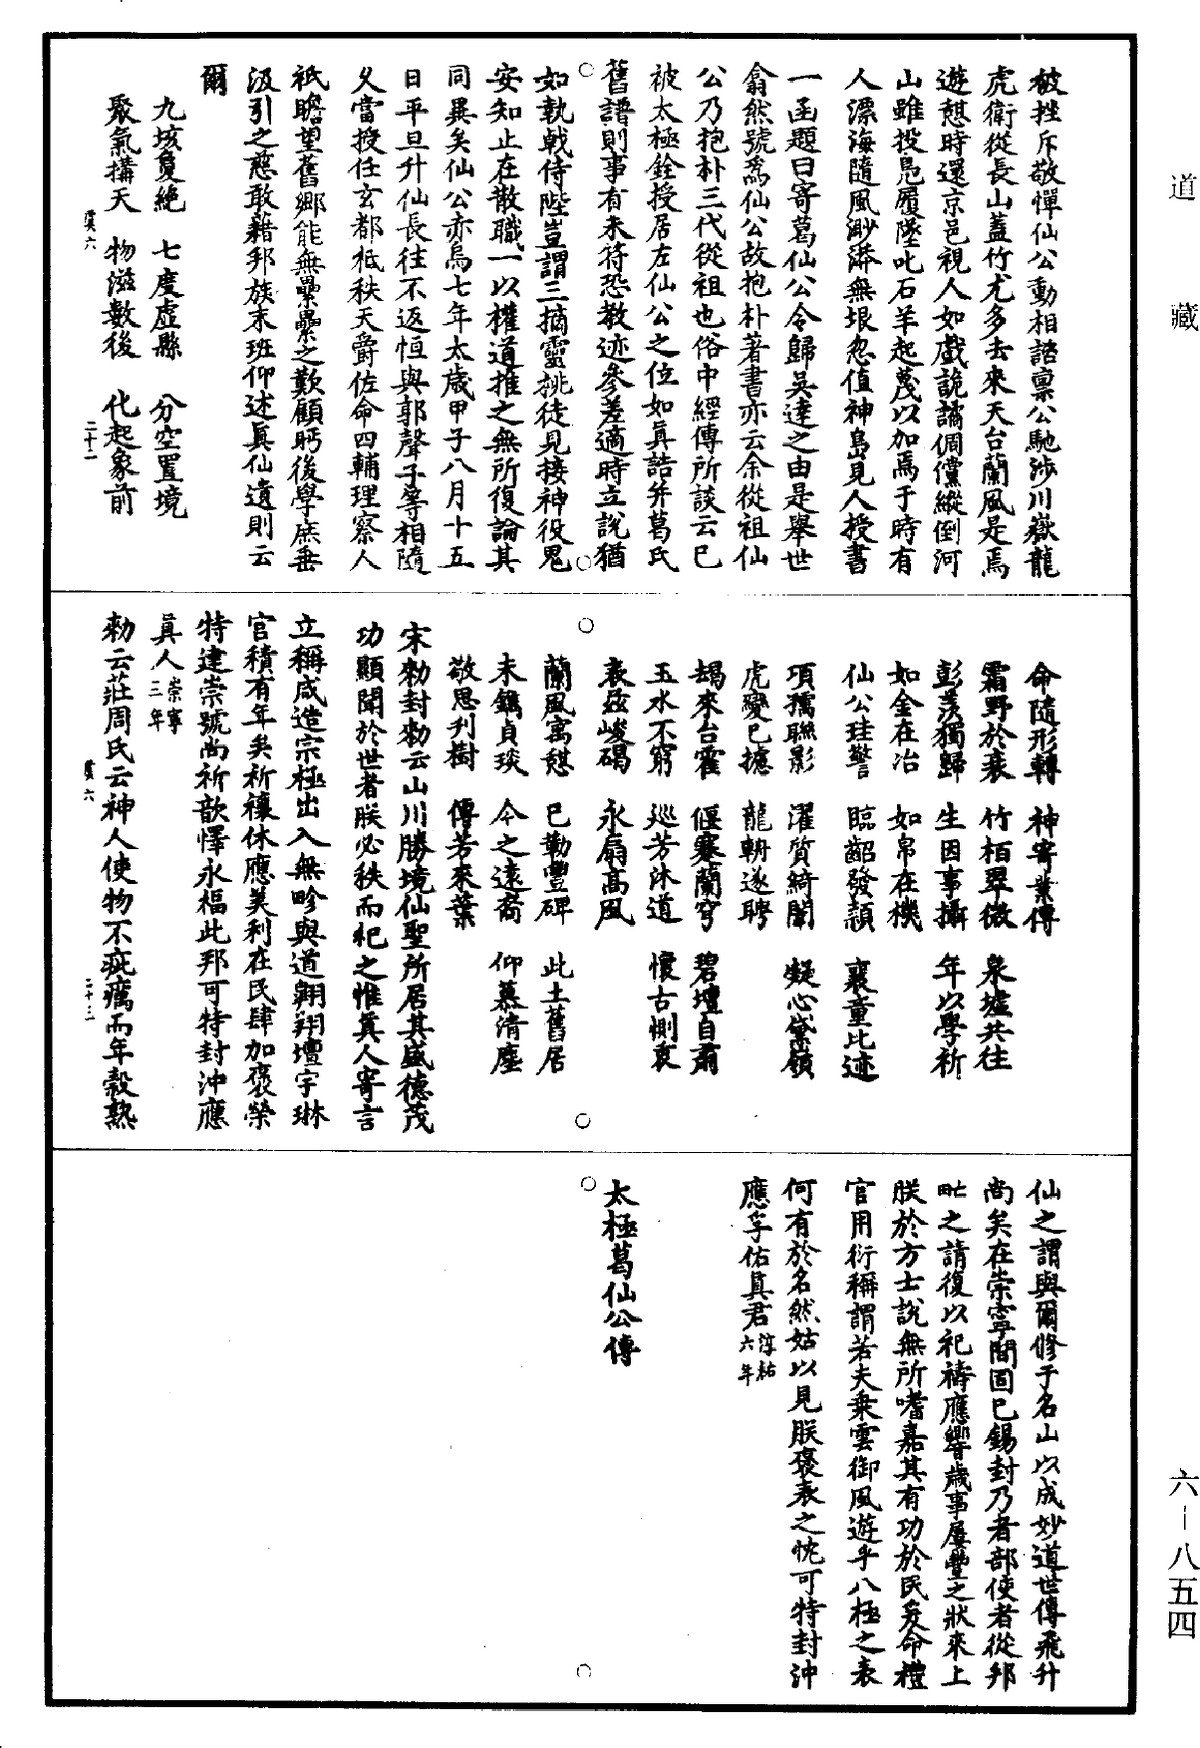 道藏
六－八五四
被挫斥敬憚仙公動相諮稟公馳涉川嶽龍
虎衛從長山蓋竹尤多去來天台蘭風是焉
遊憩時還京邑視人如戲詭譎倜儻縱倒河
山雖投鳧履墜叱石羊起蔑以加焉于時有
人漂海隨風渺漭無垠忽值神島見人授書
一函題曰寄葛仙公令歸吳達之由是舉世
翕然號為仙公故抱朴著書亦云余從祖仙
公乃抱朴三代從祖也俗中經傳所談云已
被太極銓授居左仙公之位如真誥并葛氏
舊譜則事有未符恐教迹參差適時立說猶
如執戟侍陛豈謂三摘靈桃徒見接神役鬼
安知止在散職一以權道推之無所復論其
同異矣仙公赤烏七年太歲甲子八月十五
日平旦升仙長往不返恒與郭聲子等相隨
久當授任玄都祗秩天爵佐命四輔理察人
祇瞻望舊鄉能無纍纍之歎顧眄後學庶垂
汲引之慈敢藉邦族末班仰述真仙遺則云
爾
九垓夐絕　七度虛縣　分空置境
聚氣搆天　物滋數後　化起象前
虞六　二十二
命隨形轉　神寄業傳
霜野於衰　竹柏翠微　泉墟共往
彭羨獨歸　生因事攝　年以學祈
如金在冶　如帛在機
仙公珪警　臨齠發頴　襄童比迹
項孺聯影　濯質綺闈　凝心黛嶺
虎變已攄　龍輈遂聘
朅來台霍　偃蹇蘭穹　碧壇自肅
玉水不窮　巡芳沐道　懷古惻衷
表茲峻碣　永扇高風
蘭風寓憩　已勒豐碑　此土舊居
未鐫貞琰　今之遠裔　仰慕清塵
敬思刋樹　傳芳來葉
宋勑封勑云山川勝境仙聖所居其盛德茂
功顯聞於世者朕必秩而祀之惟真人寄言
立稱咸造宗極出入無畛與道翱翔壇宇琳
官積有年矣祈禳休應美利在民肆加褒榮
特建崇號尚祈歆懌永福此邦可特封沖應
真人崇寧三年
勑云莊周氏云神人使物不疵癘而年穀熟
虞六　二十三
仙之謂與爾修于名山以成妙道世傳飛升
尚矣在崇寧間固已錫封乃者部使者從邦
甿之請復以祀禱應響歲事屢豐之狀來上
朕於方士說無所嗜嘉其有功於民爰命禮
官用衍稱謂若夫乘雲御風遊乎八極之表
何有於名然姑以見朕褒表之忱可特封沖
應孚佑真君淳祐六年
太極葛仙公傳